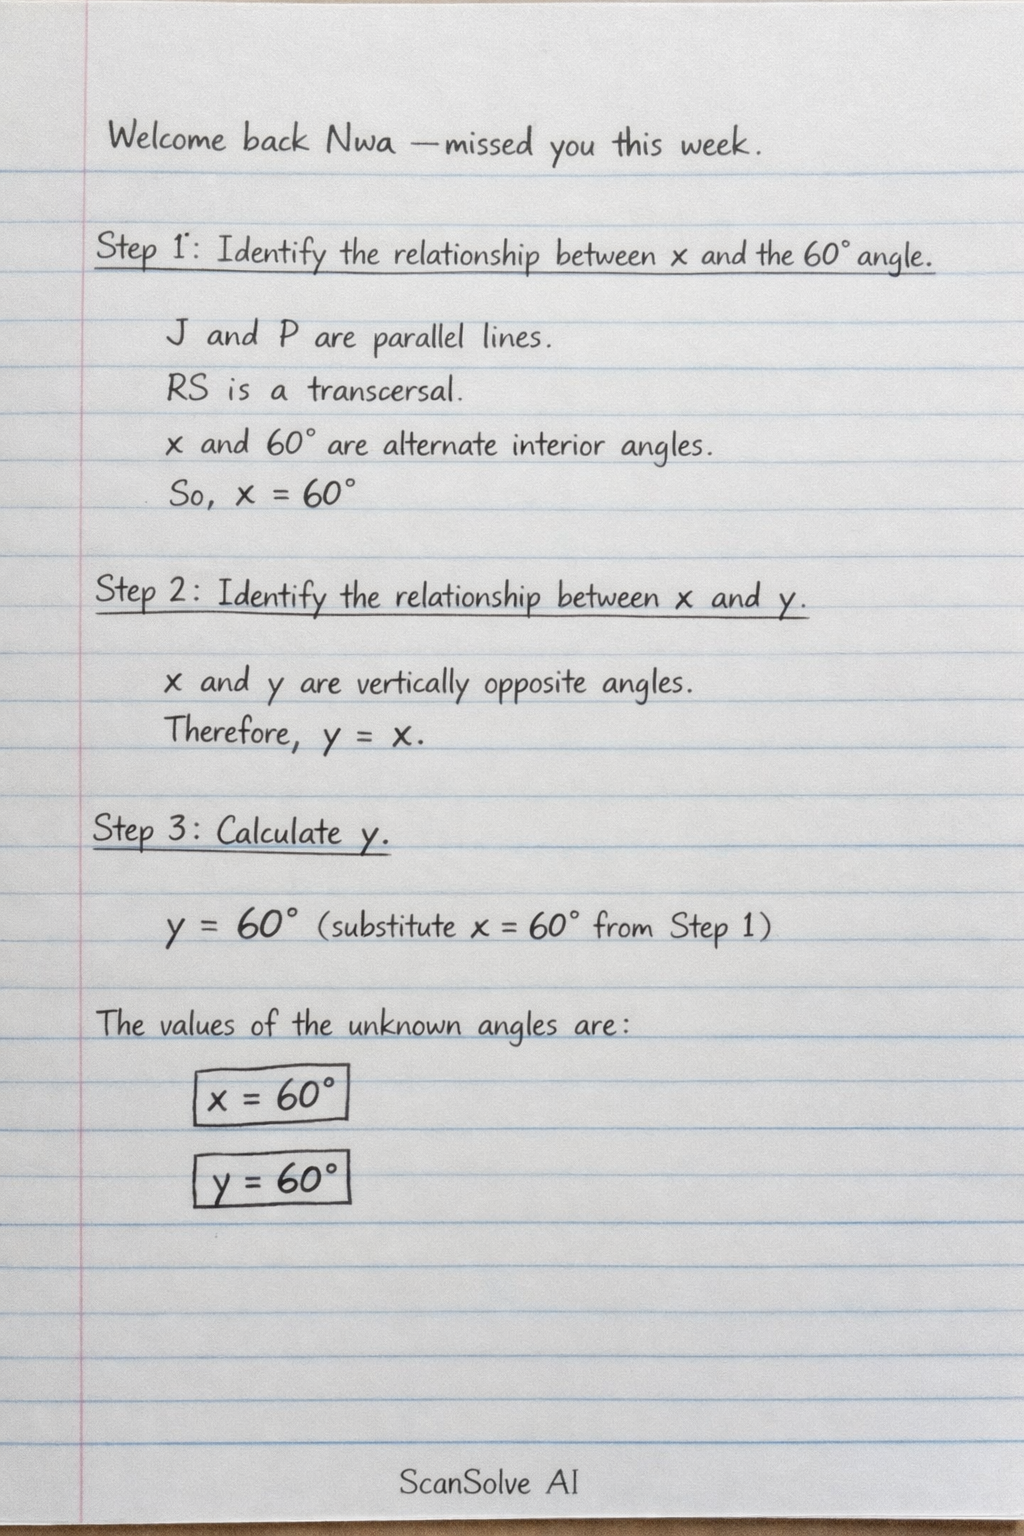 Welcome back Nwa — missed you this week.
Step 1: Identify the relationship between x and the 60° angle.
J and P are parallel lines.
RS is a transcersal.
x and 60° are alternate interior angles.
So, x = 60°
Step 2: Identify the relationship between x and y.
x and y are vertically opposite angles.
Therefore, y = x.
Step 3: Calculate y.
y = 60° (substitute x = 60° from Step 1)
The values of the unknown angles are:
x = 60°
y = 60°
ScanSolve AI